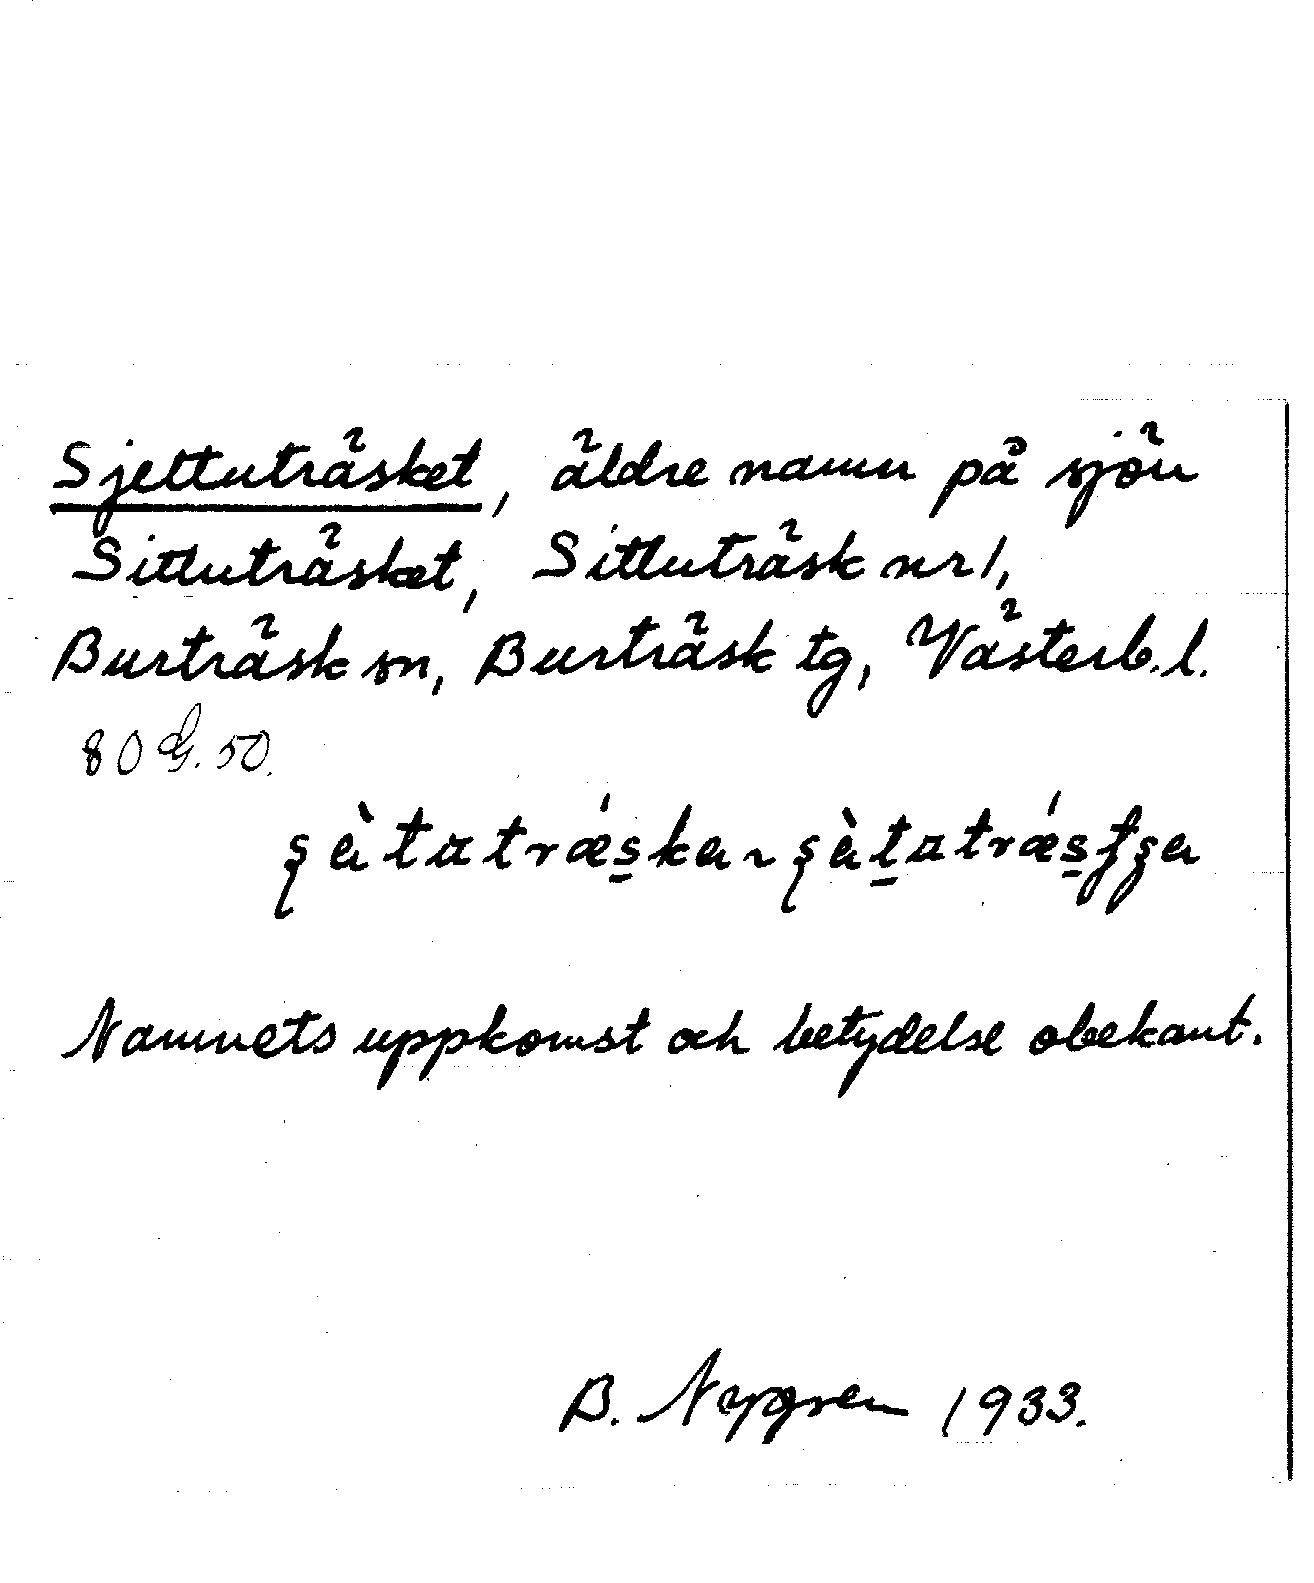 Sjettuträsket, äldre namn på sjön
Sittuträsket, Sittuträsk nr 1,
Burträsk sn, Burträsk tg, Västerb. l.
80 G. 50.
Namnets uppkomst och betydelse obekant.
B. Nygren 1933.